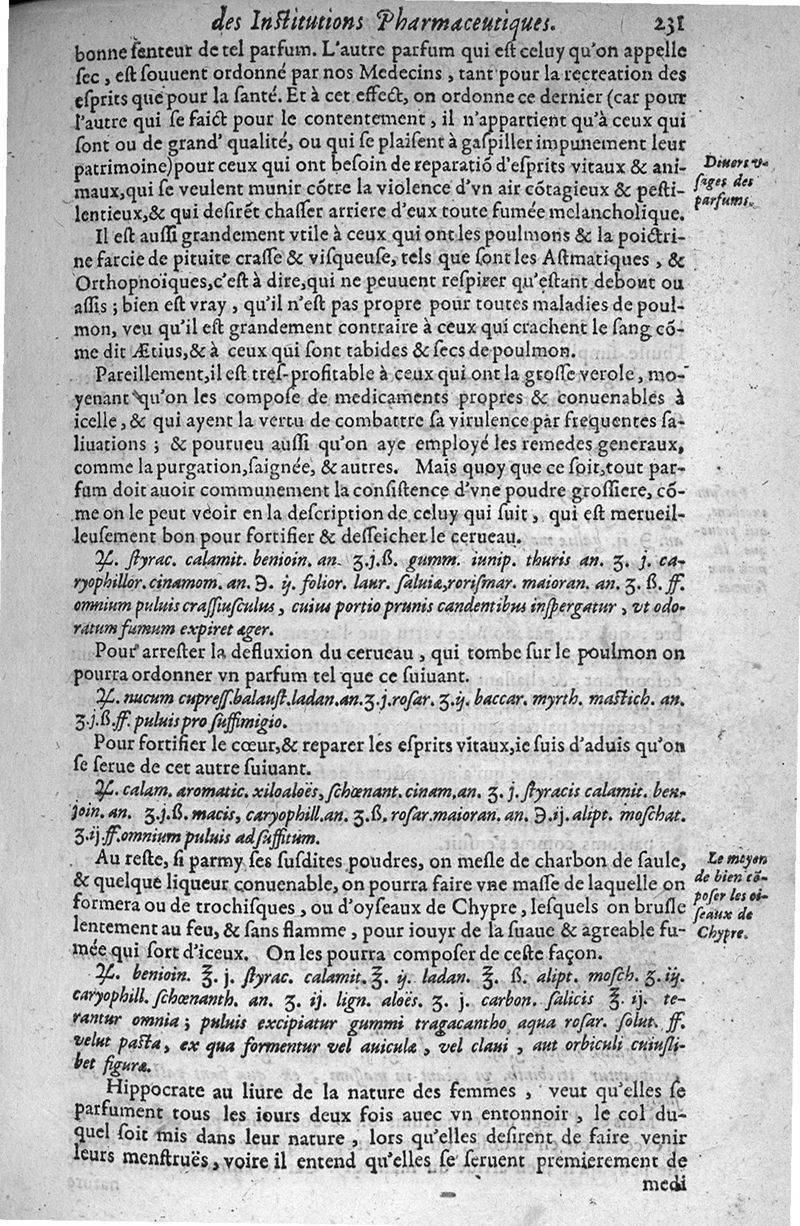 des Institutions Pharmaceutiques. 231
bonne ſenteur de tel parfum. L'autre parfum qui eſt celuy qu'on appelle
ſec, eſt ſouuent ordonné par nos Medecins, tant pour la recreation des
eſprits que pour la ſanté. Et à cet effect, on ordonne ce dernier (car pour
l'autre qui ſe faict pour le contentement, il n'appartient qu'à ceux qui
ſont ou de grand' qualité, ou qui ſe plaiſent à gaſpiller impunement leur
patrimoine) pour ceux qui ont beſoin de reparatiõ d'eſprits vitaux & ani-
maux, qui ſe veulent munir cõtre la violence d'vn air cõtagieux & peſti-
lentieux, & qui deſirẽt chaſſer arriere d'eux toute fumée melancholique.
Diuers v-
ſages des
parfums.
Il eſt auſſi grandement vtile à ceux qui ont les poulmons & la poictri-
ne farcie de pituite craſſe & viſqueuſe, tels que ſont les Aſtmatiques, &
Orthopnoïques, c'eſt à dire, qui ne peuuent reſpirer qu'eſtant debout ou
aſſis; bien eſt vray, qu'il n'eſt pas propre pour toutes maladies de poul-
mon, veu qu'il eſt grandement contraire à ceux qui crachent le ſang cõ-
me dit Ætius, & à ceux qui ſont tabides & ſecs de poulmon.
Pareillement, il eſt treſ-profitable à ceux qui ont la groſſe verole, mo-
yenant qu'on les compoſe de medicaments propres & conuenables à
icelle, & qui ayent la vertu de combattre ſa virulence par frequentes ſa-
liuations; & pourueu auſſi qu'on aye employé les remedes generaux,
comme la purgation, ſaignée, & autres. Mais quoy que ce ſoit, tout par-
fum doit auoir communement la conſiſtence d'vne poudre groſſiere, cõ-
me on le peut veoir en la deſcription de celuy qui ſuit, qui eſt merueil-
leuſement bon pour fortifier & deſſeicher le cerueau.
℞. ſtyrac. calamit. benioin. an. ʒ.j.ß. gumm. iunip. thuris an. ʒ. j. ca-
ryophillor. cinamom. an. ℈. ij. folior. laur. ſaluiæ, roriſmar. maioran. an. ʒ. ß. ff.
omnium puluis craſſiuſculus, cuius portio prunis candentibus inſpergatur, vt odo-
ratum fumum expiret æger.
Pour arreſter la defluxion du cerueau, qui tombe ſur le poulmon on
pourra ordonner vn parfum tel que ce ſuiuant.
℞. nucum cupreſſ. balauſt. ladan. an. ʒ.j. roſar. ʒ.ij. baccar. myrth. maſtich. an.
ʒ.j.ß. ff. puluis pro ſuffimigio.
Pour fortifier le cœur, & reparer les eſprits vitaux, ie ſuis d'aduis qu'on
ſe ſerue de cet autre ſuiuant.
℞. calam. aromatic. xiloaloës, ſchœnant. cinam. an. ʒ. j. ſtyracis calamit. ben-
join. an. ʒ.j.ß. macis, caryophill. an. ʒ.ß. roſar. maioran. an. ℈.ij. alipt. moſchat.
ʒ.ij ff. omnium puluis ad ſuffitum.
Au reſte, ſi parmy ſes ſuſdites poudres, on meſle de charbon de ſaule,
& quelque liqueur conuenable, on pourra faire vne maſſe de laquelle on
formera ou de trochiſques, ou d'oyſeaux de Chypre, leſquels on bruſle
lentement au feu, & ſans flamme, pour iouyr de la ſuaue & agreable fu-
mée qui ſort d'iceux. On les pourra compoſer de ceſte façon.
Le moyen
de bien cõ-
poſer les oi-
ſeaux de
Chypre.
℞. benioin. ℥. j. ſtyrac. calamit. ℥. ij. ladan. ℥. ß. alipt. moſch. ʒ. iij.
caryophill. ſchœnanth. an. ʒ. ij. lign. aloës. ʒ. j. carbon. ſalicis ℥. ij. te-
rantur omnia; puluis excipiatur gummi tragacantho aqua roſar. ſolut. ff.
velut paſta, ex qua formentur vel auiculæ, vel claui, aut orbiculi cuiuſli-
bet figuræ.
Hippocrate au liure de la nature des femmes, veut qu'elles ſe
parfument tous les iours deux fois auec vn entonnoir, le col du-
quel ſoit mis dans leur nature, lors qu'elles deſirent de faire venir
leurs menſtruës, voire il entend qu'elles ſe ſeruent premierement de
medi